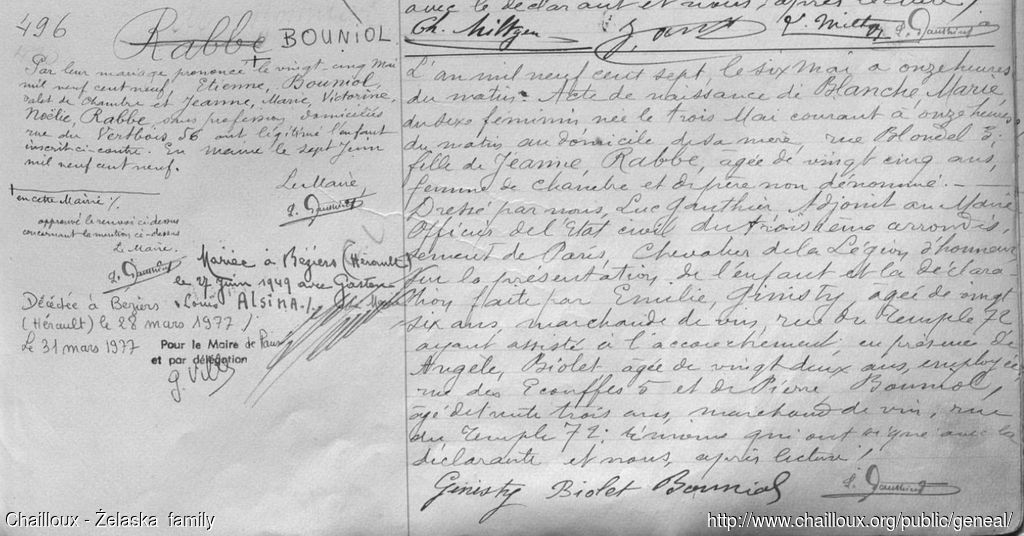 496
Rabbe BOUNIOL
Par leur mariage prononcé le vingt cinq Mai
mil neuf cent neuf, Etienne, Bouniol,
valet de Chambre et Jeanne, Marie, Victorine,
Noëlie, Rabbe sans profession domiciliés
rue du Vertbois 56 ont légitimé l'enfant
inscrit ci-contre. En mairie le sept Juin
mil neuf cent neuf.
Le Maire,
L. Gauthier
en cette Mairie /.
approuvé le renvoi ci-dessus
concernant la mention ci-dessus
Le Maire.
L. Gauthier
Mariée à Béziers (Hérault)
le 27 Juin 1949 avec Gaston
Louis ALSINA./.
Décédée à Beziers
(Hérault) le 28 mars 1977 /.
Le 31 mars 1977
Pour le Maire de Paris
et par délégation
avec le déclarant et nous, après lecture /
Ch. Miltgen
L. Gauthier
L'an mil neuf cent sept, le six Mai à onze heures
du matin. Acte de naissance de Blanche, Marie,
du sexe féminin née le trois Mai courant à onze heures
du matin, au domicile de sa mère, rue Blondel 3;
fille de Jeanne, Rabbe, agée de vingt cinq ans,
femme de chambre et de père non dénommé. —
Dressé par nous, Luc Gauthier Adjoint au Maire
Officier de l'Etat civil du troisième arrondis,
sement de Paris, Chevalier de la Légion d'honneur
Sur la présentation de l'enfant et la déclara-
tion faite par Emilie, Ginisty, agée de vingt
six ans, marchande de vins, rue du Temple 72
ayant assisté à l'accouchement; en présence de
Angèle, Biolet agée de vingt deux ans, employée,
rue des Ecouffes 5 et de Pierre Bouniol,
âgé de trente trois ans, marchand de vin, rue
du Temple 72; témoins qui ont signé avec la
déclarante et nous, après lecture /
Ginisty Biolet Bouniol L. Gauthier
Chailloux - Želaska family
http://www.chailloux.org/public/geneal/